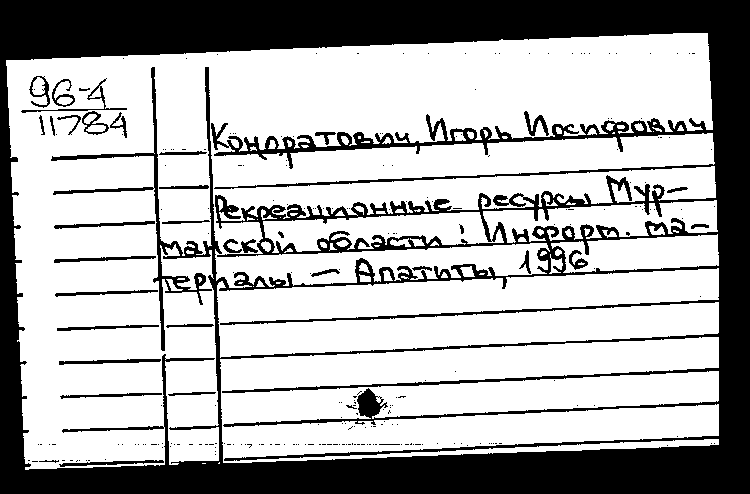 96-4
11784
Кондратович, Игорь Иосифович
Рекреационные ресурсы Мур-
манской области : Информ. ма-
териалы. — Апатиты, 1996.